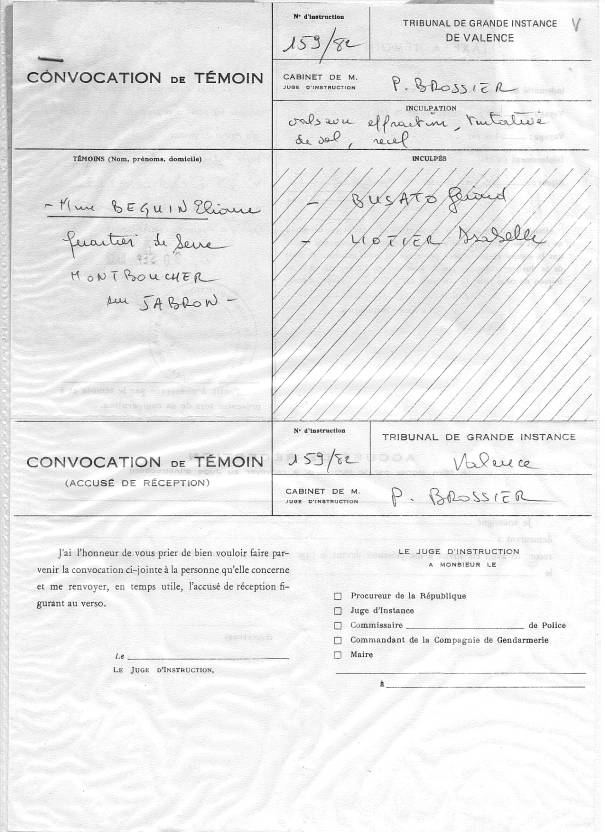 CONVOCATION DE TÉMOIN
N° d'instruction
159/82
TRIBUNAL DE GRANDE INSTANCE
DE VALENCE
V
CABINET DE M.
JUGE D'INSTRUCTION
P. BROSSIER
INCULPATION
vols avec effraction, tentative
de vol, recel
TÉMOINS (Nom, prénoms, domicile)
- Mme BEGUIN Eliane
Quartier de Serre
MONTBOUCHER
sur JABRON -
INCULPÉS
- BUSATO Gérard
- Isabelle
CONVOCATION DE TÉMOIN
(ACCUSÉ DE RÉCEPTION)
N° d'instruction
159/82
TRIBUNAL DE GRANDE INSTANCE
Valence
CABINET DE M.
JUGE D'INSTRUCTION
P. BROSSIER
J'ai l'honneur de vous prier de bien vouloir faire par-
venir la convocation ci-jointe à la personne qu'elle concerne
et me renvoyer, en temps utile, l'accusé de réception fi-
gurant au verso.
Le
LE JUGE D'INSTRUCTION,
LE JUGE D'INSTRUCTION
A MONSIEUR LE
Procureur de la République
Juge d'Instance
Commissaire de Police
Commandant de la Compagnie de Gendarmerie
Maire
à